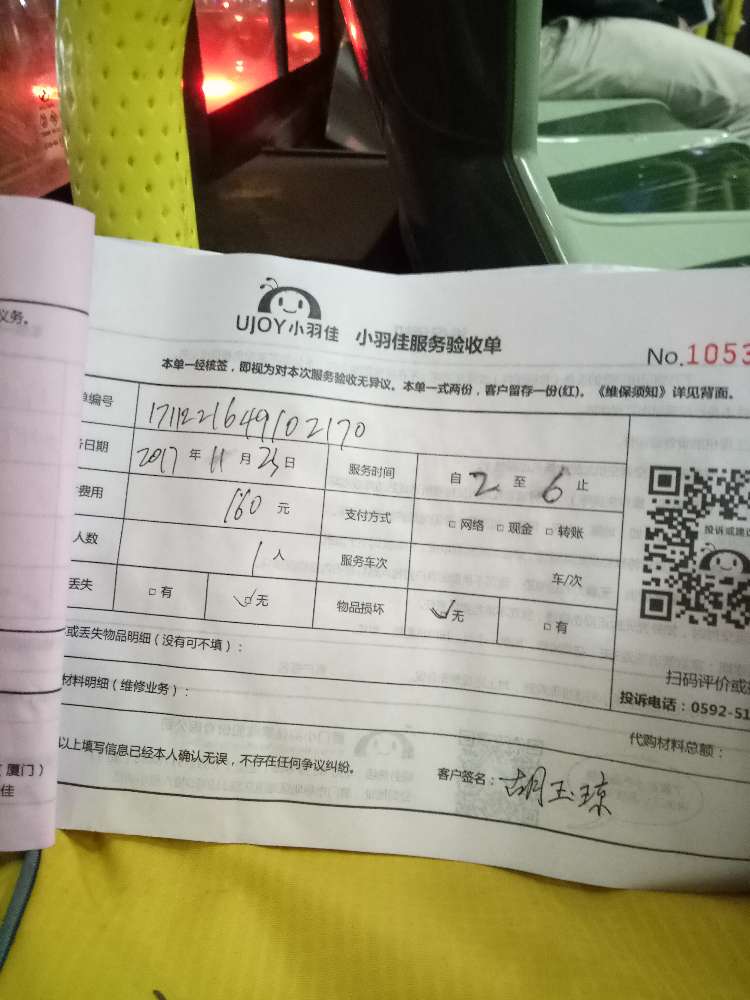 义务。
UJOY小羽佳 小羽佳服务验收单
No.1053
本单一经核签，即视为对本次服务验收无异议。本单一式两份，客户留存一份(红)。《维保须知》详见背面。
单编号 1711221649102170
日期 2017 年 11 月 23 日 服务时间 自 2 至 6 止
费用 160 元 支付方式 □ 网络 □ 现金 □ 转账
人数 1 人 服务车次 车/次
丢失 □ 有 □ 无 物品损坏 □ 无 □ 有
投诉或建议
扫码评价或
投诉电话：0592-51
或丢失物品明细（没有可不填）：
材料明细（维修业务）：
代购材料总额：
以上填写信息已经本人确认无误，不存在任何争议纠纷。
客户签名：胡玉琼
（厦门）
佳